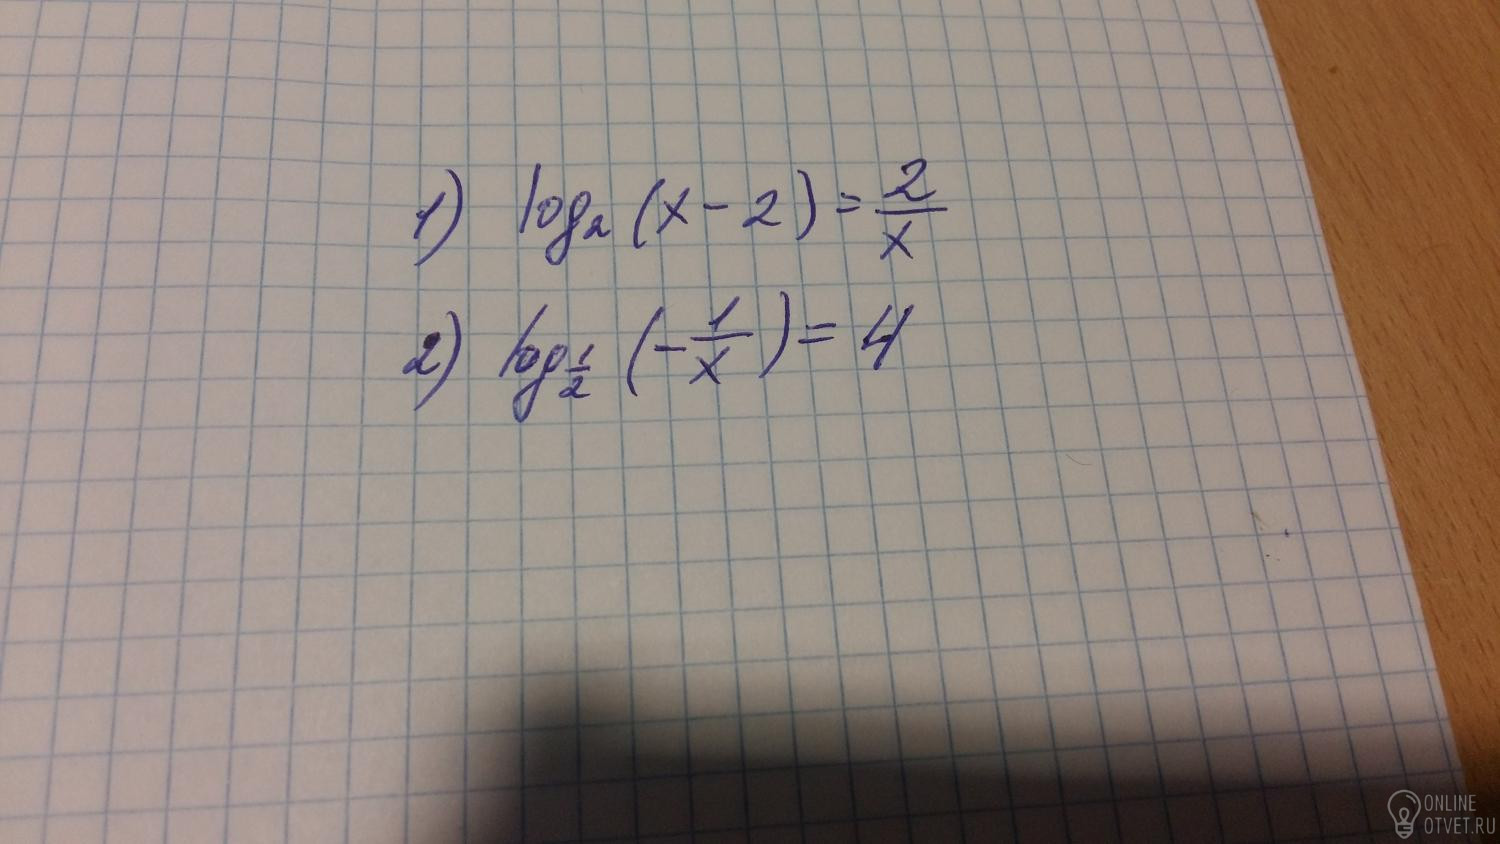 1) log₂ (x − 2) = 2/x
2) log_{1/2} (−1/x) = 4
ONLINE
OTVET.RU